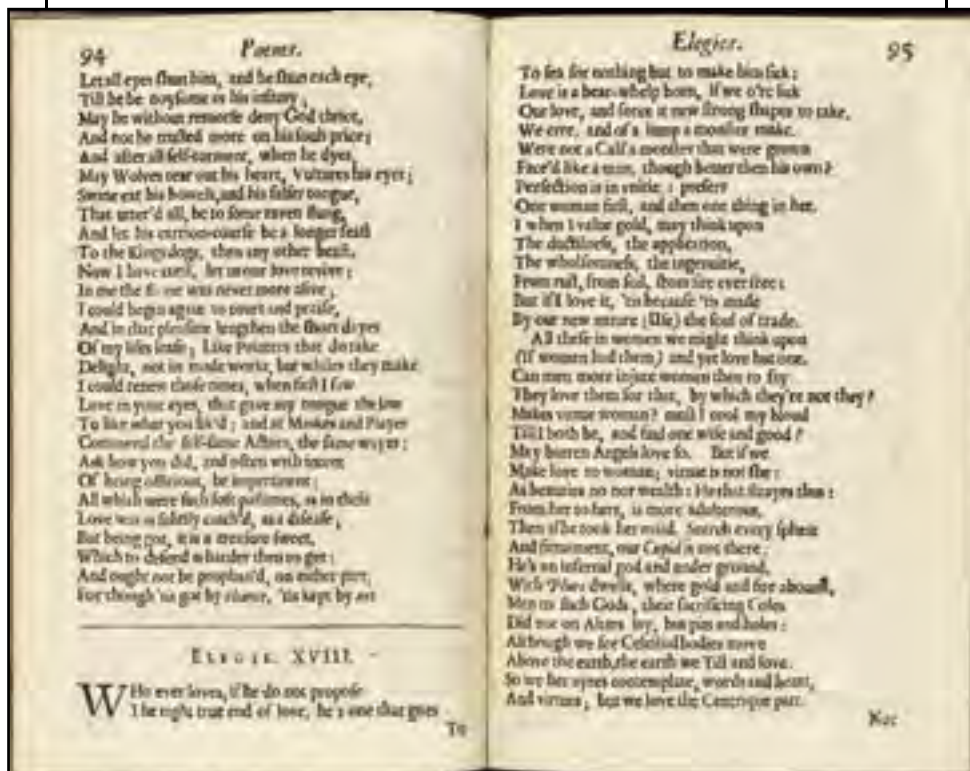 94 Poems.
Let all eyes shun him, and he shun each eye,
Till he be noysome as his infamy;
May he without remorse deny God thrice,
And not be trusted more on his souls price;
And after all self-torment, when he dyes,
May Wolves tear out his heart, Vultures his eyes;
Swine eat his bowels, and his falser tongue,
That utter'd all, be to some raven flung,
And let his carrion-coarse be a longer feast
To the Kings dogs, then any other beast.
Now I have curst, let us our love revive;
In me the flame was never more alive;
I could begin again to court and praise,
And in that pleasure lengthen the short dayes
Of my lifes lease; Like Painters that do take
Delight, not in made works, but whiles they make
I could renew those times, when first I saw
Love in your eyes, that gave my tongue the law
To like what you lik'd; and at Maskes and Playes
Commend the self-same Actors, the same wayes;
Ask how you did, and often with intent
Of being officious, be impertinent;
All which were such soft pastimes, as in these
Love was as subtilly catch'd, as a disease;
But being got, it is a treasure sweet,
Which to defend is harder then to get:
And ought not be prophan'd, on either part,
For though 'tis got by chance, 'tis kept by art
ELEGIE XVIII.
WHo ever loves, if he do not propose
The right true end of love, he's one that goes
To
Elegies. 95
To sea for nothing but to make him sick:
Love is a bear-whelp born, if we o're lick
Our love, and force it new strong shapes to take,
We erre, and of a lump a monster make.
Were not a Calf a monster that were grown
Face'd like a man, though better then his own?
Perfection is in unitie: prefer
One woman first, and then one thing in her.
I when I value gold, may think upon
The ductilness, the application,
The wholsomness, the ingenuitie,
From rust, from soil, from fire ever free:
But if I love it, 'tis because 'tis made
By our new nature (Use) the soul of trade.
All these in women we might think upon
(If women had them) and yet love but one.
Can men more injure women then to say
They love them for that, by which they're not they?
Makes vertue woman? must I cool my bloud
Till I both be, and find one wise and good?
May barren Angels love so. But if we
Make love to woman; virtue is not she:
As beauties no nor wealth: He that strayes thus:
From her to hers, is more adulterous,
Then if he took her maid. Search every sphear
And firmament, our Cupid is not there:
He's an infernal god and under ground,
With Pluto dwells, where gold and fire abound,
Men to such Gods, their sacrificing Coles
Did not on Altars lay, but pits and holes:
Although we see Celestial bodies move
Above the earth, the earth we Till and love:
So we her ayres contemplate, words and heart,
And virtues; but we love the Centrique part.
Nor